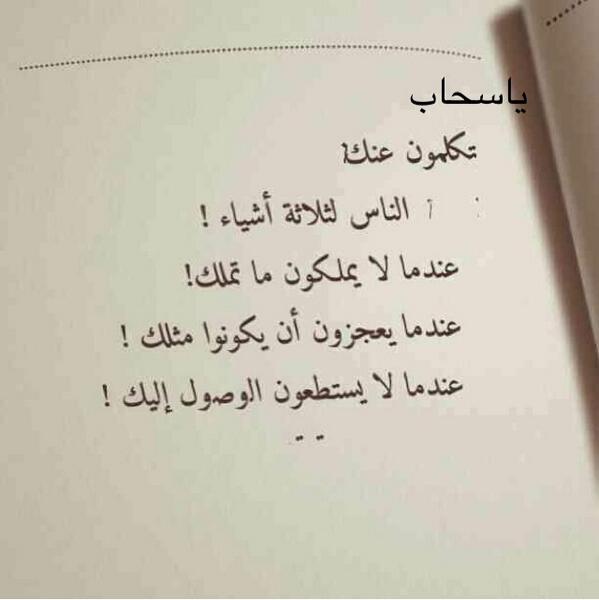 ياسحاب
تكلمون عنك
الناس لثلاثة أشياء !
عندما لا يملكون ما تملك!
عندما يعجزون أن يكونوا مثلك !
عندما لا يستطعون الوصول إليك !